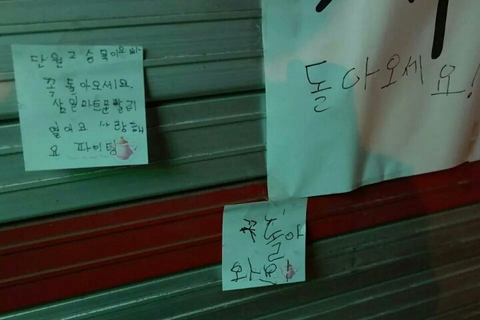 단원고 승묵이오빠
꼭 돌아오세요.
삼일마트문빨리
열어요 사랑해
요 파이팅
돌아오세요!
꼭
돌아
오세요